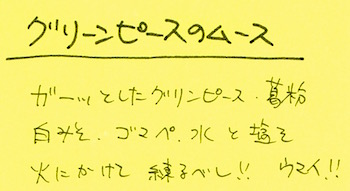 グリーンピースのムース
ガーッとしたグリンピース・葛粉
白みそ、ゴマペ、水と塩を
火にかけて 練るべし!! ウマイ!!